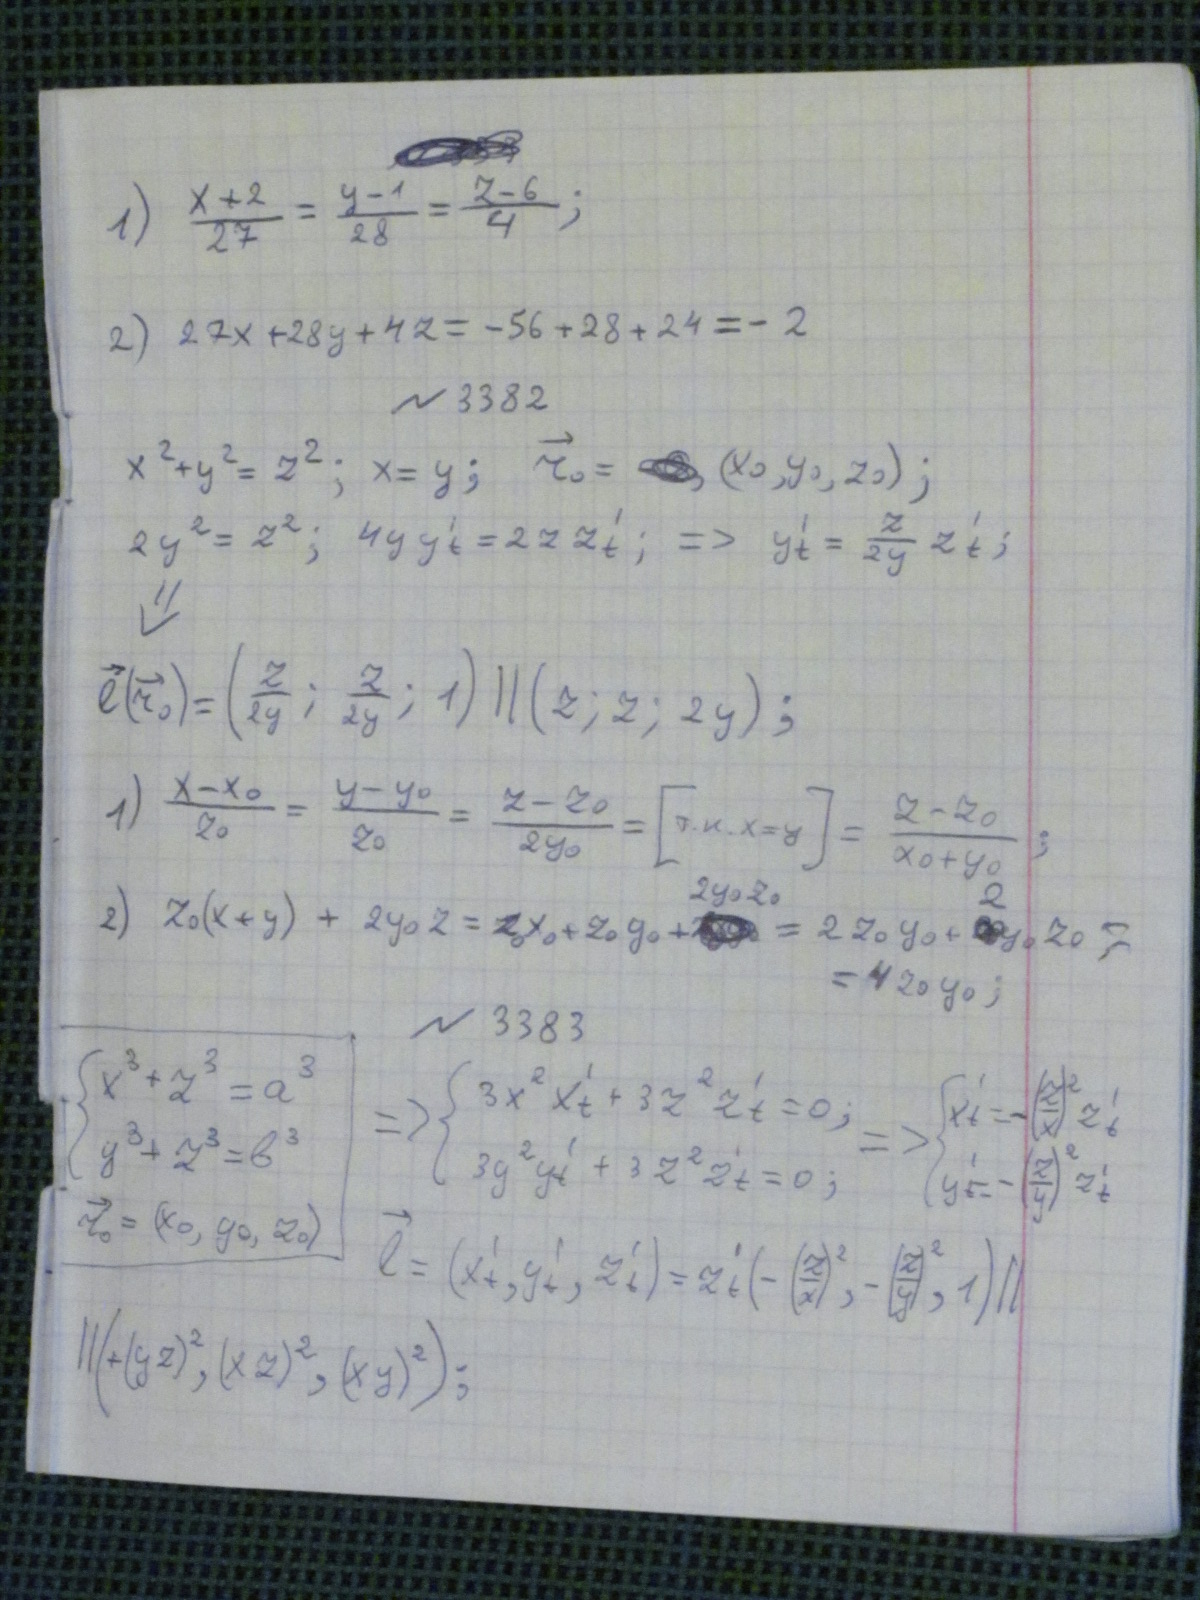 1) (x+2)/27 = (y-1)/28 = (z-6)/4 ;
2) 27x+28y+4z = -56+28+24 = -2
~ 3382
x² + y² = z² ; x = y ; r⃗₀ = (x₀, y₀, z₀) ;
2y² = z² ; 4y y'ₜ = 2z z'ₜ ; => y'ₜ = z/2y z'ₜ ;
⇓
l⃗(r⃗₀) = (z/2y ; z/2y ; 1) || (z ; z ; 2y) ;
1) (x-x₀)/z₀ = (y-y₀)/z₀ = (z-z₀)/2y₀ = [т.к. x=y] = (z-z₀)/(x₀+y₀) ;
2) z₀(x+y) + 2y₀z = z₀x₀ + z₀y₀ + 2y₀z₀ = 2z₀y₀ + 2y₀z₀ =
= 4z₀y₀ ;
~ 3383
{ x³+z³ = a³ y³+z³ = b³ => { 3x² x'ₜ + 3z² z'ₜ = 0 ; 3y² y'ₜ + 3z² z'ₜ = 0 ; => { x'ₜ = -(z/x)² z'ₜ y'ₜ = -(z/y)² z'ₜ
r⃗₀ = (x₀, y₀, z₀)
l⃗ = (x'ₜ, y'ₜ, z'ₜ) = z'ₜ(-(z/x)², -(z/y)², 1) ||
|| (+(yz)², (xz)², (xy)²) ;